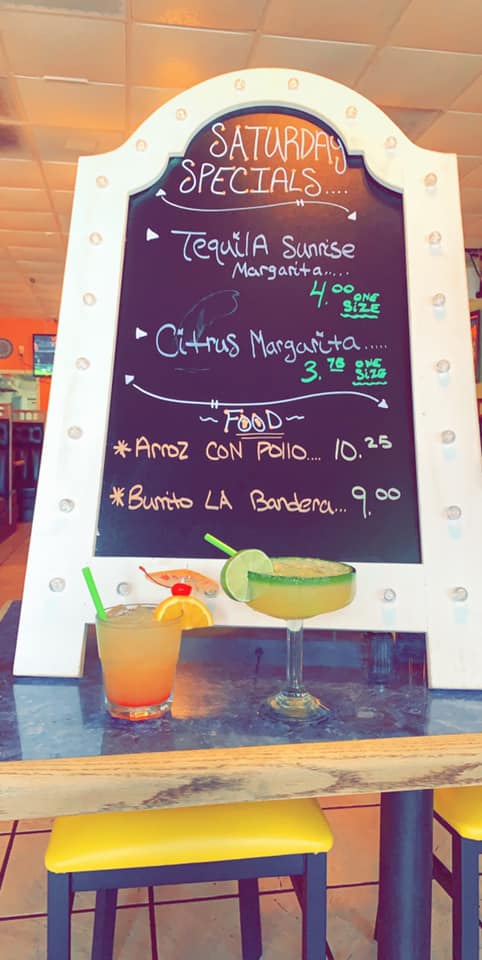 SATURDAY
SPECIALS....
Tequila Sunrise
Margarita.....
4.00 ONE
SIZE
Citrus Margarita.....
3.75 ONE
SIZE
~FOOD~
*Arroz con Pollo.... 10.25
*Burrito LA Bandera... 9.00